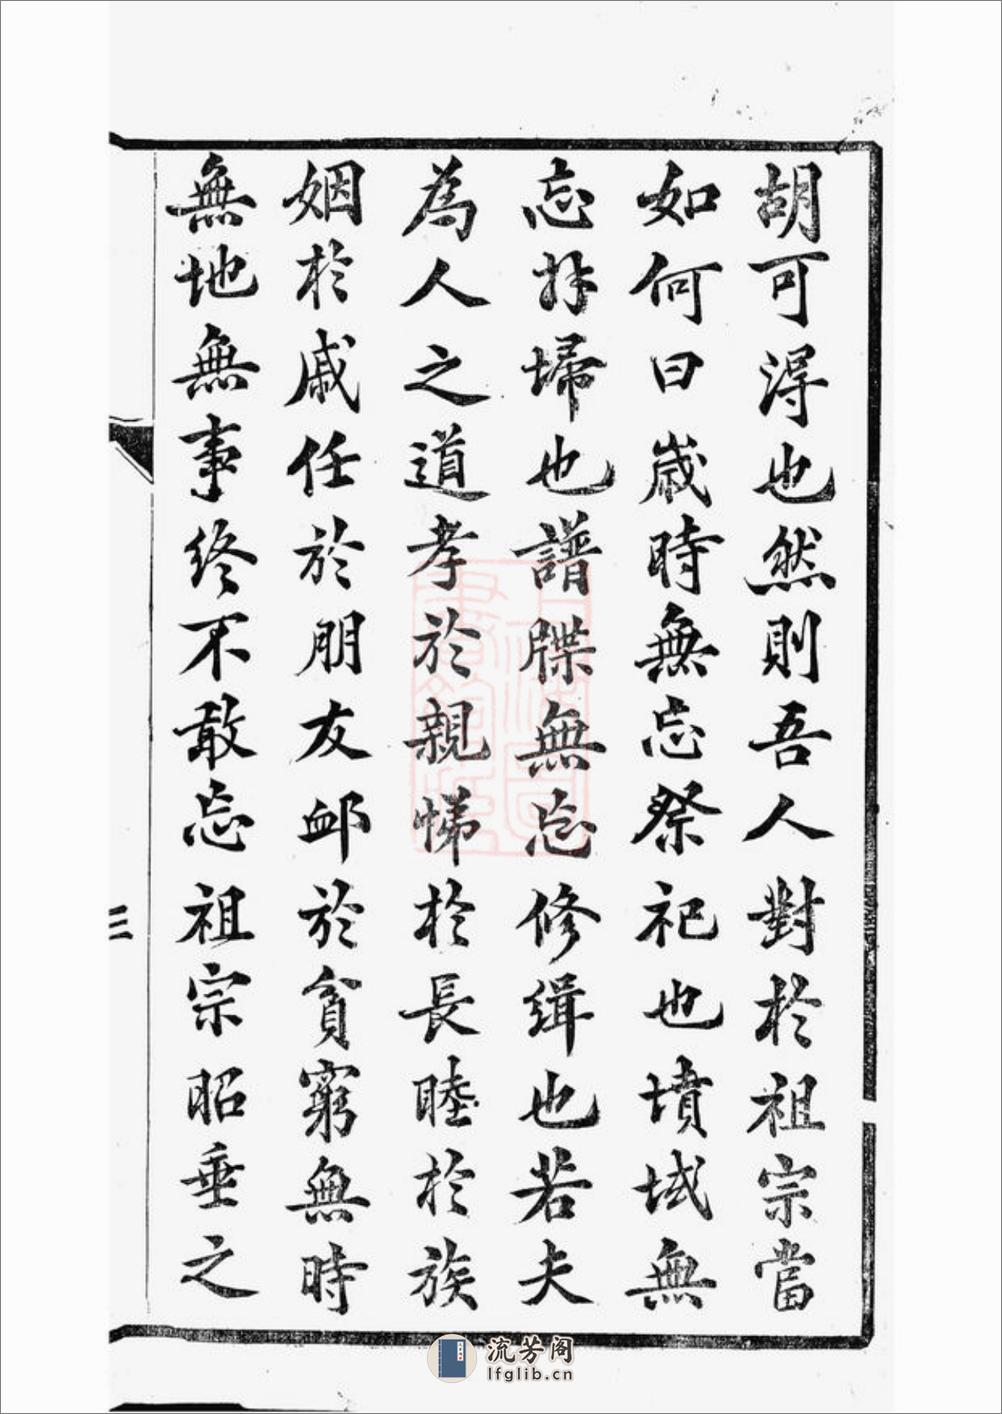 胡可得也然則吾人對於祖宗當
如何曰歲時無忘祭祀也墳域無
忘拜掃也譜牒無忘修緝也若夫
為人之道孝於親悌於長睦於族
姻於戚任於朋友卹於貧窮無時
無地無事終不敢忘祖宗昭垂之
三
流芳阁
lfglib.cn